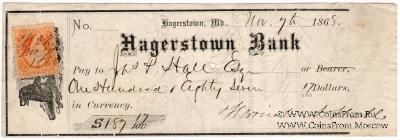 No. Hagerstown, Md., Nov. 7th 1868.
Hagerstown Bank
Pay to Jas P. Hall Esq or Bearer,
One Hundred & Eighty Seven 17/100 Dollars,
in Currency.
$187 17/100
© CoinsFrom.Ru
CoinsFrom.Moscow